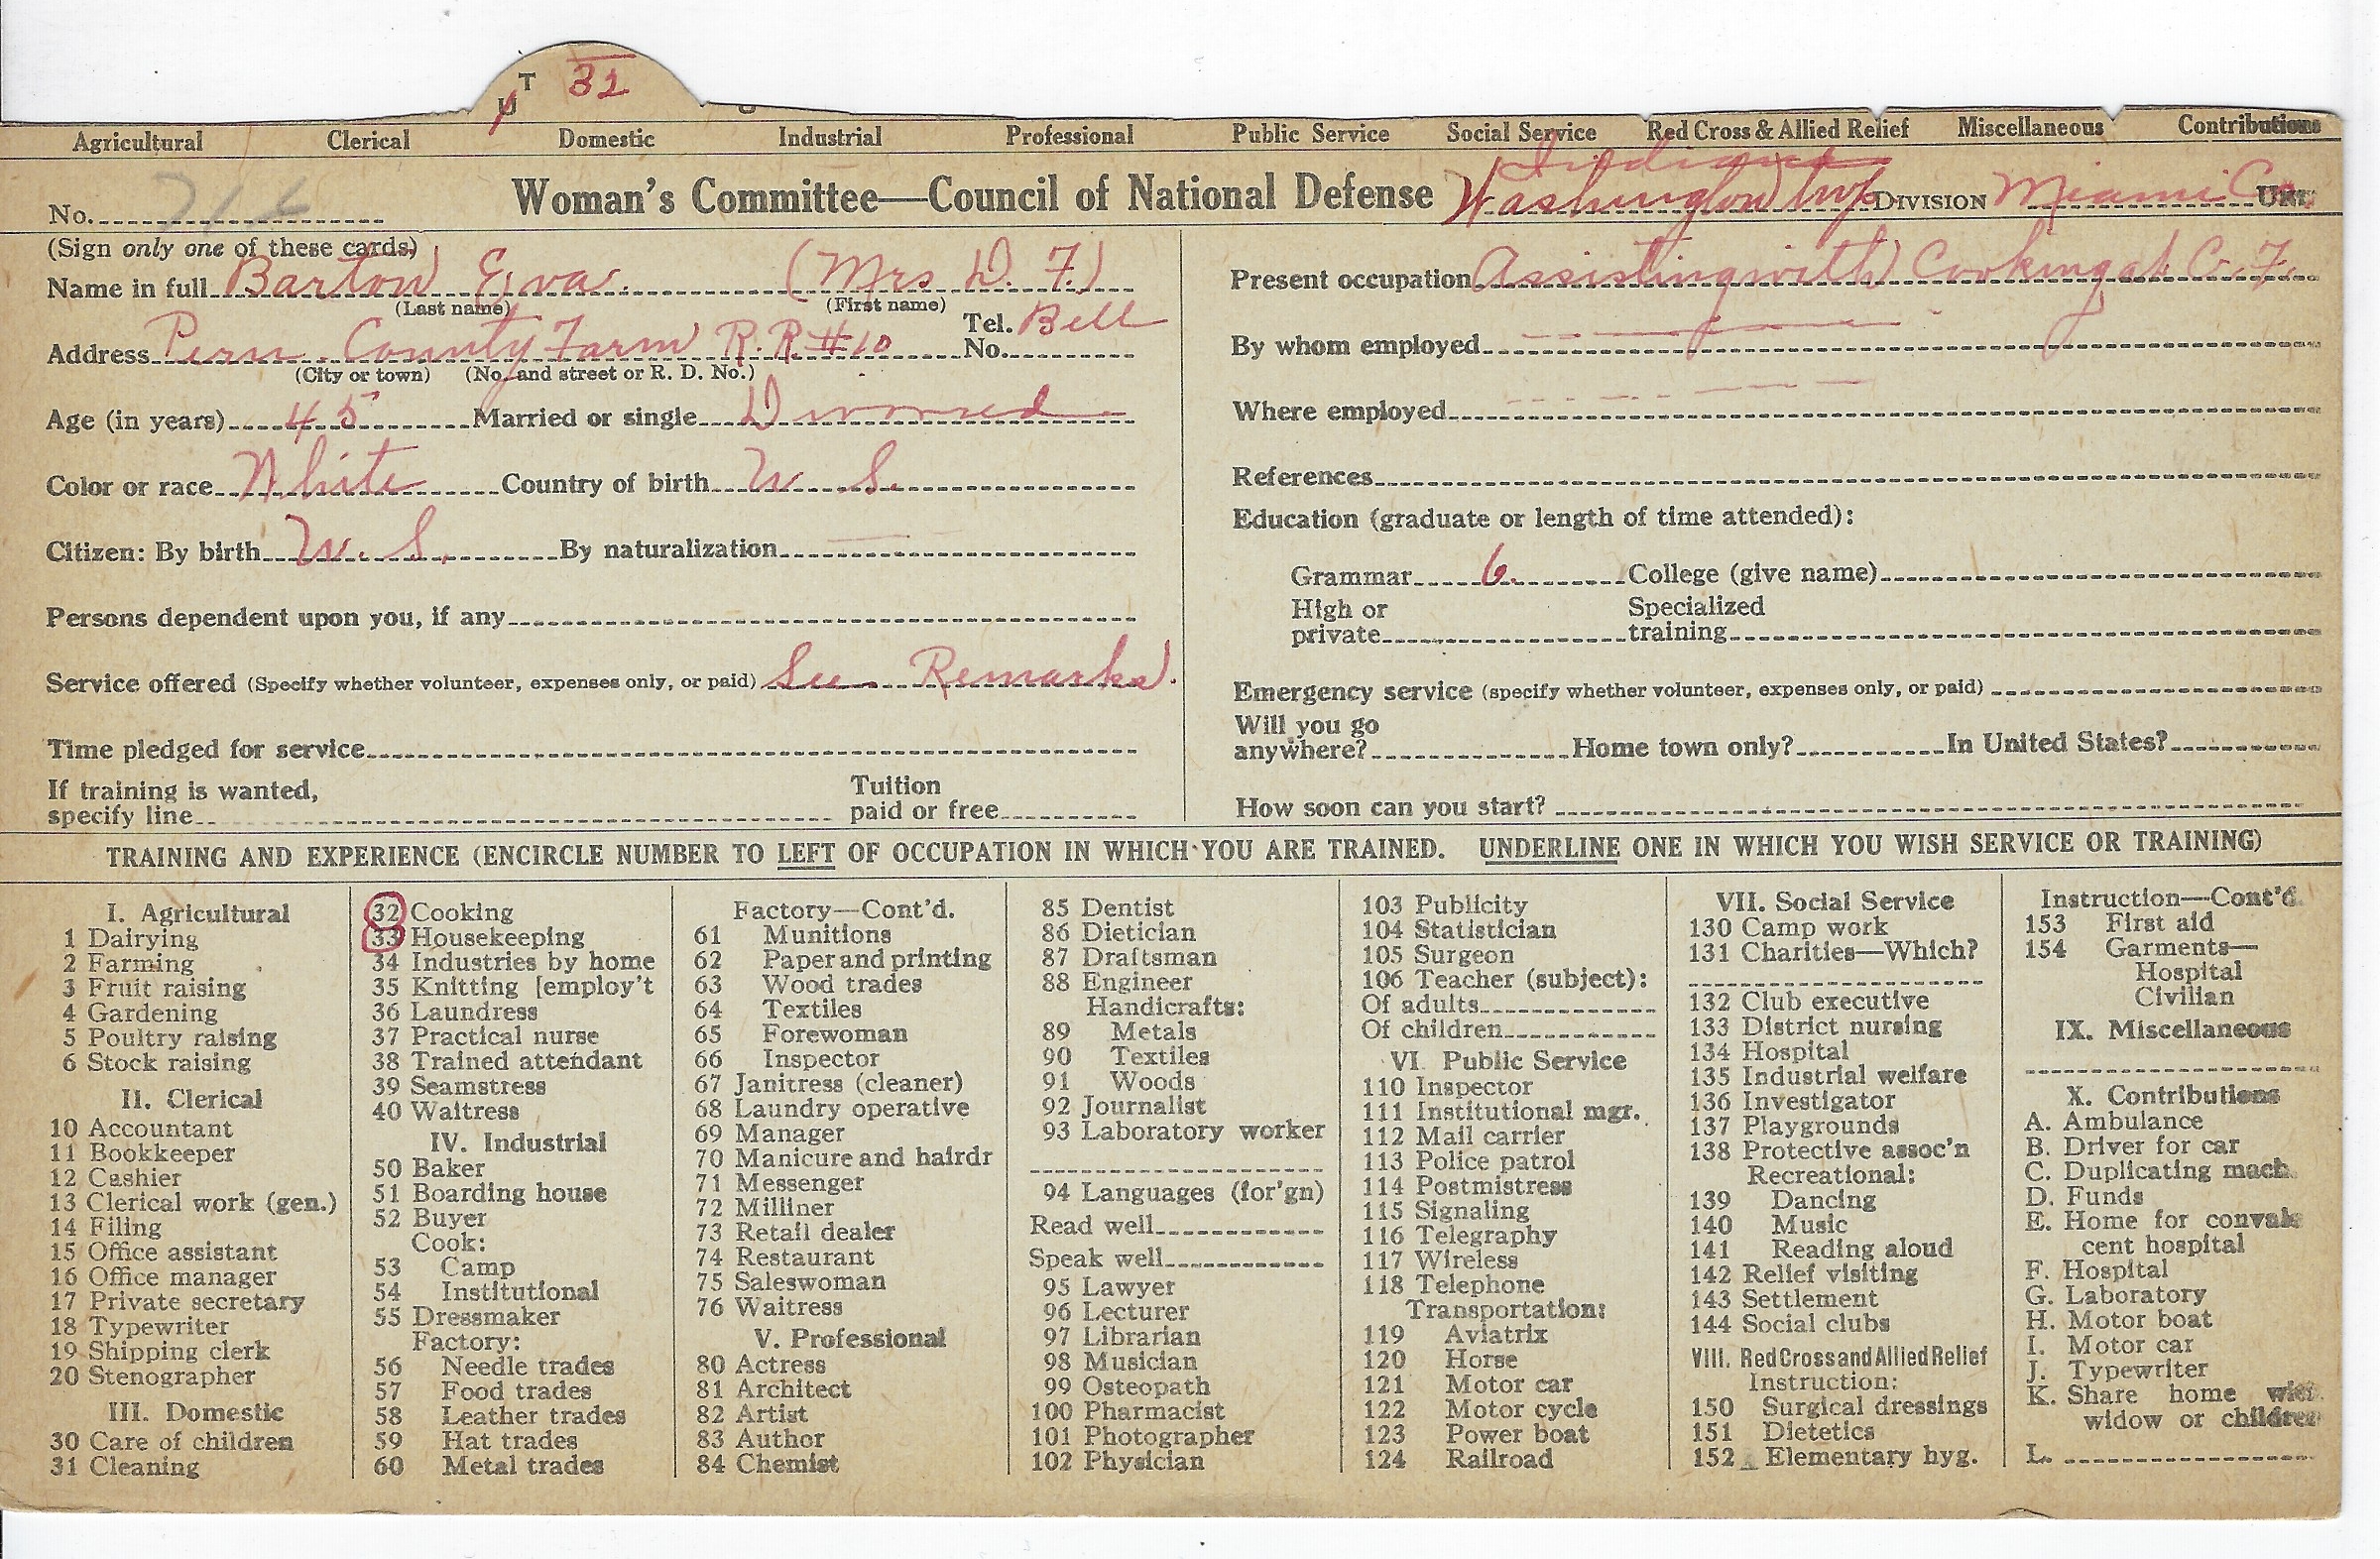 T 32
U
Agricultural Clerical Domestic Industrial Professional Public Service Social Service Red Cross & Allied Relief Miscellaneous Contributions
Indiana
No. 716 Woman's Committee—Council of National Defense Washington twp DIVISION Miami Co. UNIT
(Sign only one of these cards)
Name in full Barton Eva. (Mrs D. F.)
(Last name) (First name)
Address Peru County Farm R.R. #10 Tel. No. Bell
(City or town) (No. and street or R. D. No.)
Age (in years) 45 Married or single Divorced
Color or race White Country of birth U. S.
Citizen: By birth U. S. By naturalization
Persons dependent upon you, if any
Service offered (Specify whether volunteer, expenses only, or paid) See Remarks.
Time pledged for service
If training is wanted, specify line Tuition paid or free
Present occupation Assisting with Cooking at C. F.
By whom employed
Where employed
References
Education (graduate or length of time attended):
Grammar 6. College (give name)
High or private Specialized training
Emergency service (specify whether volunteer, expenses only, or paid)
Will you go anywhere? Home town only? In United States?
How soon can you start?
TRAINING AND EXPERIENCE (ENCIRCLE NUMBER TO LEFT OF OCCUPATION IN WHICH YOU ARE TRAINED. UNDERLINE ONE IN WHICH YOU WISH SERVICE OR TRAINING)
I. Agricultural
1 Dairying
2 Farming
3 Fruit raising
4 Gardening
5 Poultry raising
6 Stock raising
II. Clerical
10 Accountant
11 Bookkeeper
12 Cashier
13 Clerical work (gen.)
14 Filing
15 Office assistant
16 Office manager
17 Private secretary
18 Typewriter
19 Shipping clerk
20 Stenographer
III. Domestic
30 Care of children
31 Cleaning
32 Cooking
33 Housekeeping
34 Industries by home
35 Knitting [employ't
36 Laundress
37 Practical nurse
38 Trained attendant
39 Seamstress
40 Waitress
IV. Industrial
50 Baker
51 Boarding house
52 Buyer
Cook:
53 Camp
54 Institutional
55 Dressmaker
Factory:
56 Needle trades
57 Food trades
58 Leather trades
59 Hat trades
60 Metal trades
Factory—Cont'd.
61 Munitions
62 Paper and printing
63 Wood trades
64 Textiles
65 Forewoman
66 Inspector
67 Janitress (cleaner)
68 Laundry operative
69 Manager
70 Manicure and hairdr
71 Messenger
72 Milliner
73 Retail dealer
74 Restaurant
75 Saleswoman
76 Waitress
V. Professional
80 Actress
81 Architect
82 Artist
83 Author
84 Chemist
85 Dentist
86 Dietician
87 Draftsman
88 Engineer
Handicrafts:
89 Metals
90 Textiles
91 Woods
92 Journalist
93 Laboratory worker
94 Languages (for'gn)
Read well
Speak well
95 Lawyer
96 Lecturer
97 Librarian
98 Musician
99 Osteopath
100 Pharmacist
101 Photographer
102 Physician
103 Publicity
104 Statistician
105 Surgeon
106 Teacher (subject):
Of adults
Of children
VI. Public Service
110 Inspector
111 Institutional mgr.
112 Mail carrier
113 Police patrol
114 Postmistress
115 Signaling
116 Telegraphy
117 Wireless
118 Telephone
Transportation:
119 Aviatrix
120 Horse
121 Motor car
122 Motor cycle
123 Power boat
124 Railroad
VII. Social Service
130 Camp work
131 Charities—Which?
132 Club executive
133 District nursing
134 Hospital
135 Industrial welfare
136 Investigator
137 Playgrounds
138 Protective assoc'n
Recreational:
139 Dancing
140 Music
141 Reading aloud
142 Relief visiting
143 Settlement
144 Social clubs
VIII. Red Cross and Allied Relief
Instruction:
150 Surgical dressings
151 Dietetics
152 Elementary hyg.
Instruction—Cont'd.
153 First aid
154 Garments—
Hospital
Civilian
IX. Miscellaneous
X. Contributions
A. Ambulance
B. Driver for car
C. Duplicating mach.
D. Funds
E. Home for convales
cent hospital
F. Hospital
G. Laboratory
H. Motor boat
I. Motor car
J. Typewriter
K. Share home with
widow or children
L.